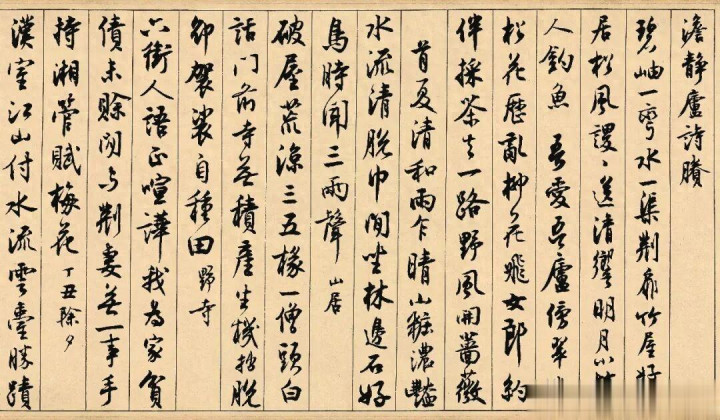 澹静廬詩賸
碧岫一彎水一渠荆扉竹屋好
居松風謖〻送清響明月小
人釣魚 吾愛吾廬傍翠
松花歷亂柳花飛女郎約
伴採茶去一路野風開薔薇
首夏清和雨乍晴山粧濃豔
水流清脫巾閒坐林邊石好
鳥時聞三兩聲 山居
破屋荒涼三五椽一僧頭白
話門前寺無積產生機拙脫
卻袈裟自種田 野寺
六街人語正喧譁我為家貧
債未賒閒與荆妻無一事手
持湘管賦梅花 丁丑除夕
漢室江山付水流雲臺勝蹟